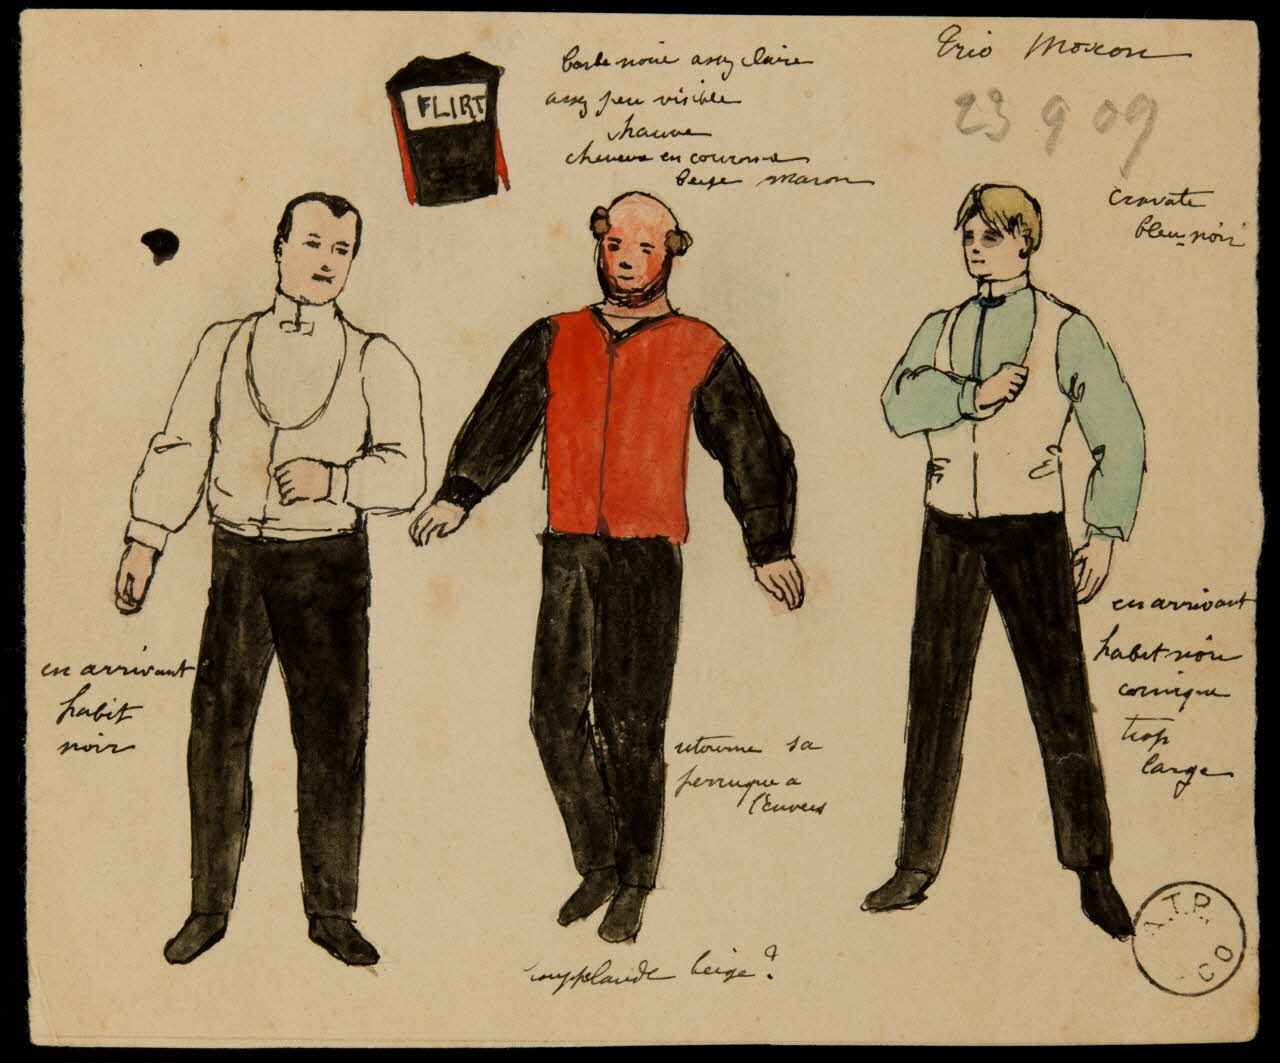 Trio Moxon
23 9 09
FLIRT
barbe noire assez claire
assez peu visible
chauve
cheveux en couronne
beige maron
cravate
bleu-noir
en arrivant
habit
noir
retourne sa
perruque a
l'envers
en arrivant
habit noir
comique
trop
large
beige?
A.T.P.
CO